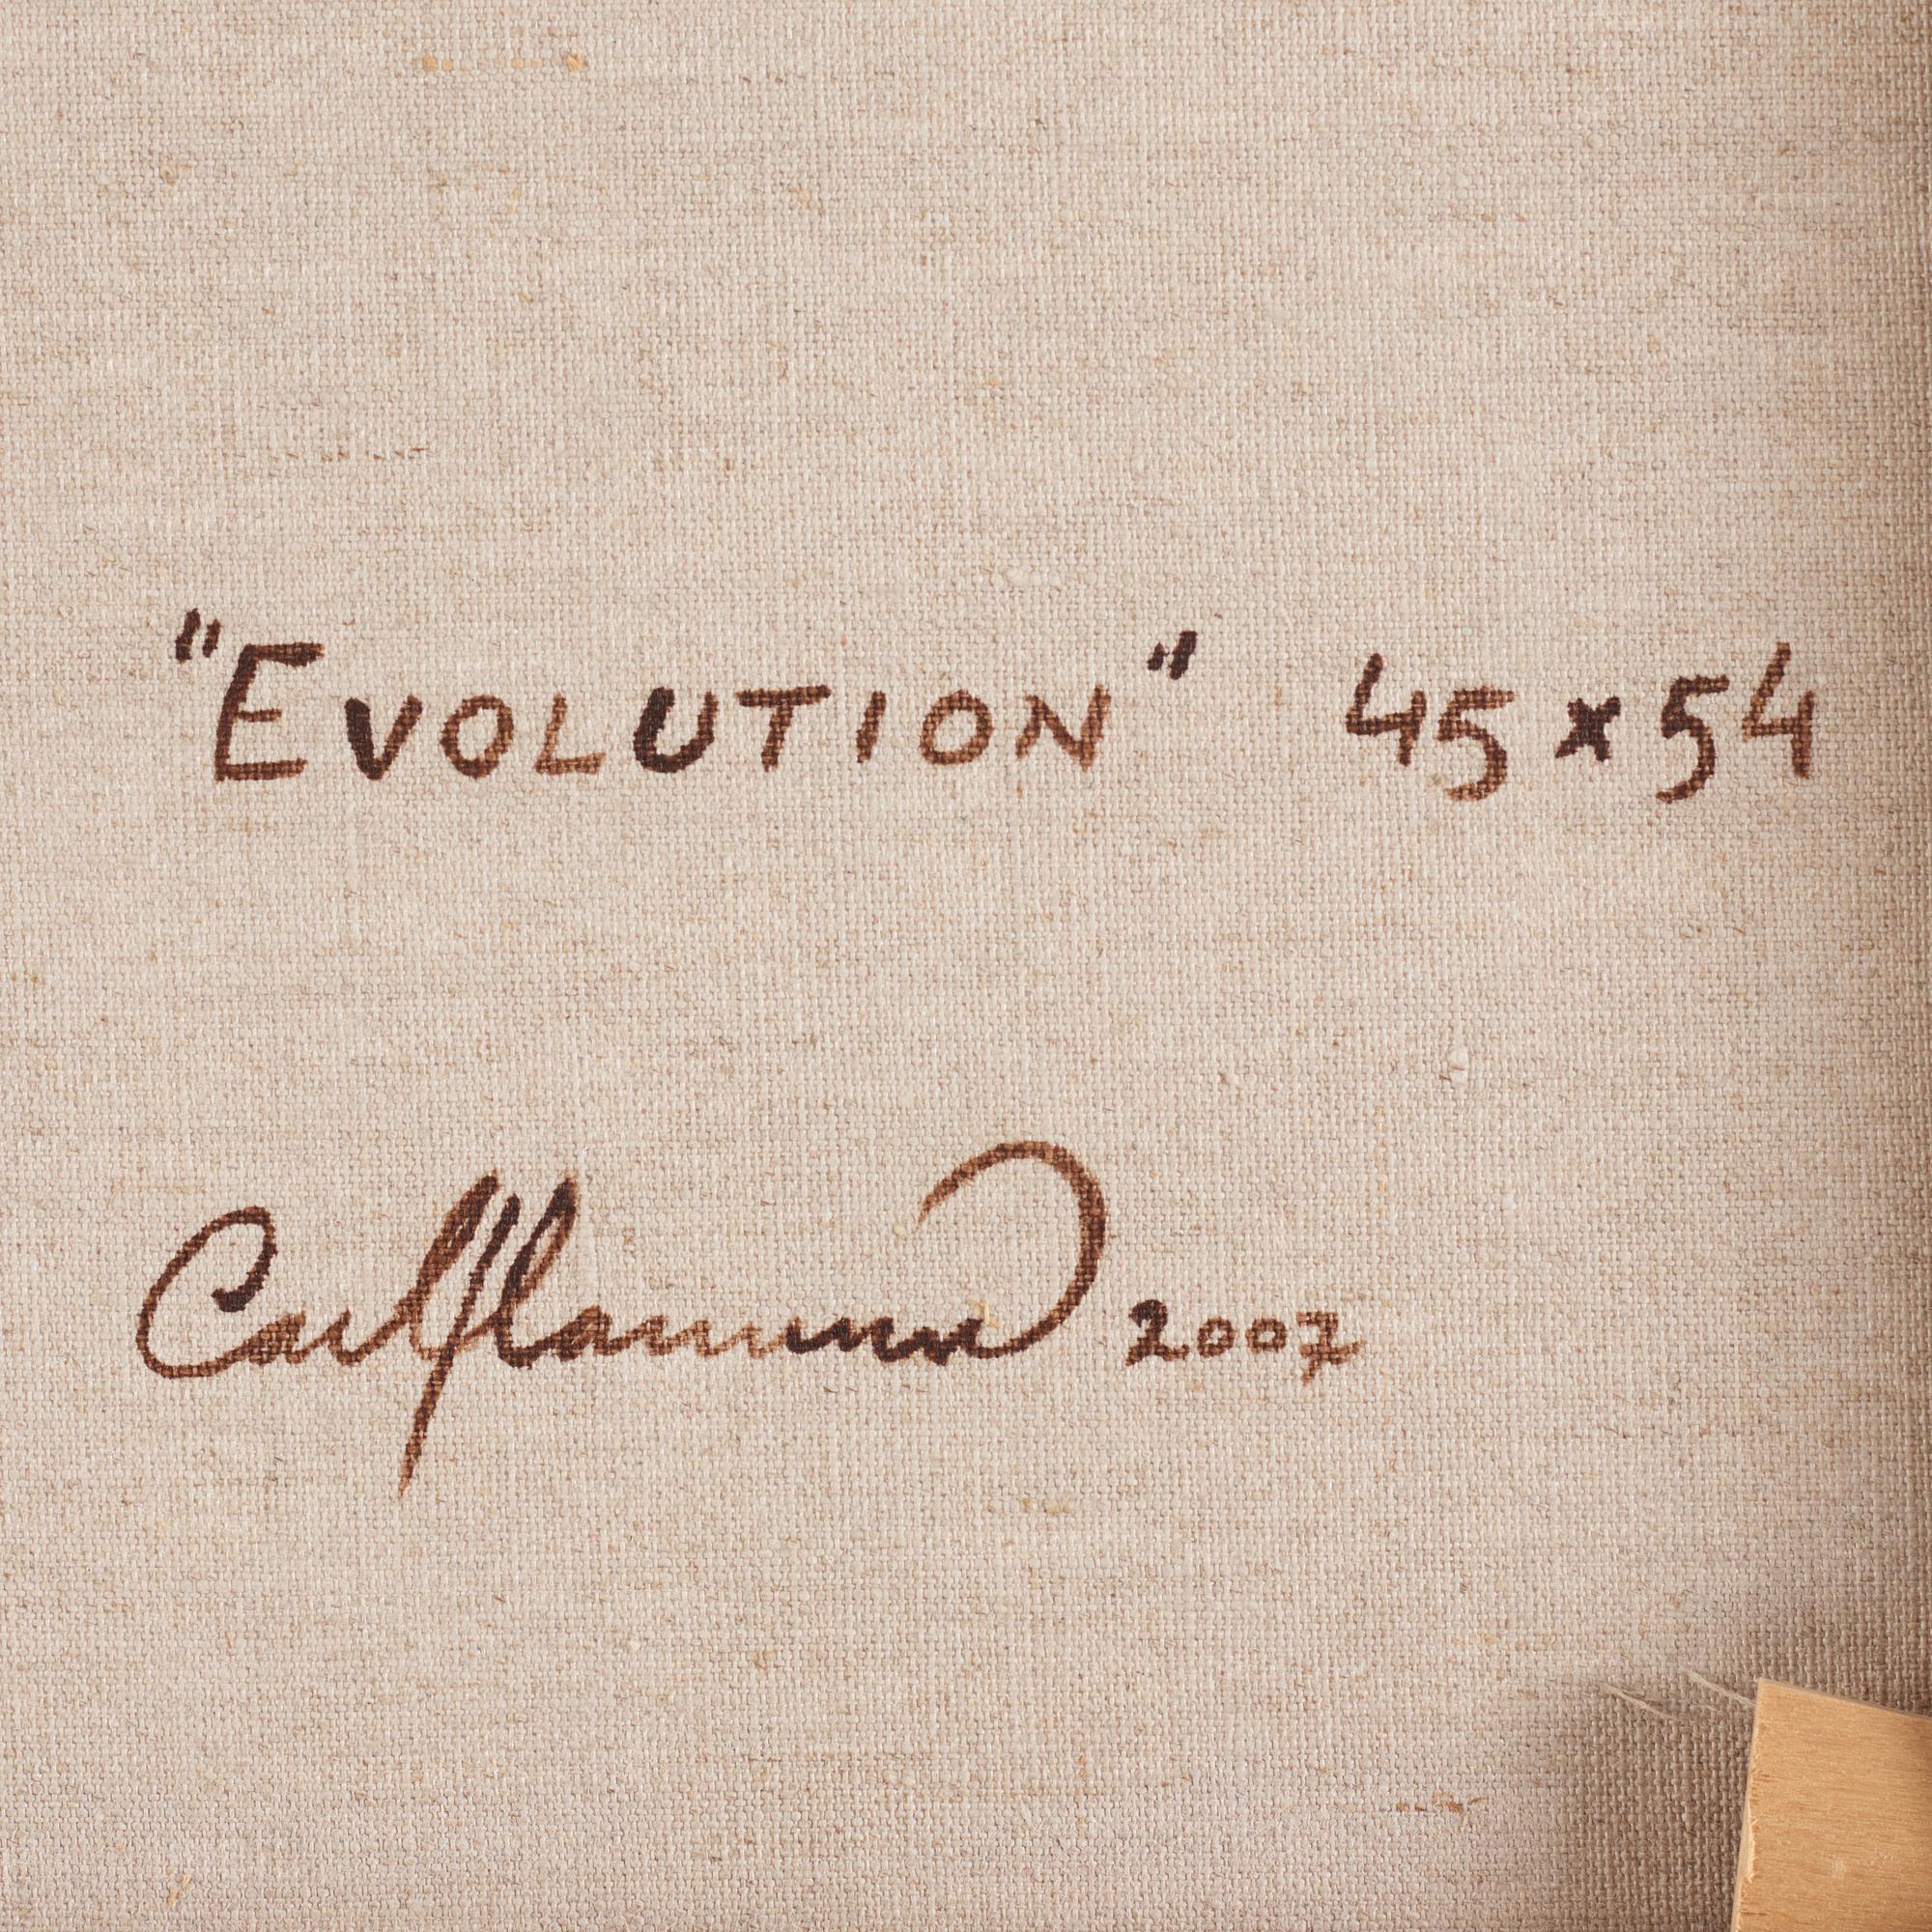 "EVOLUTION" 45x54
Carl Hammoud 2007